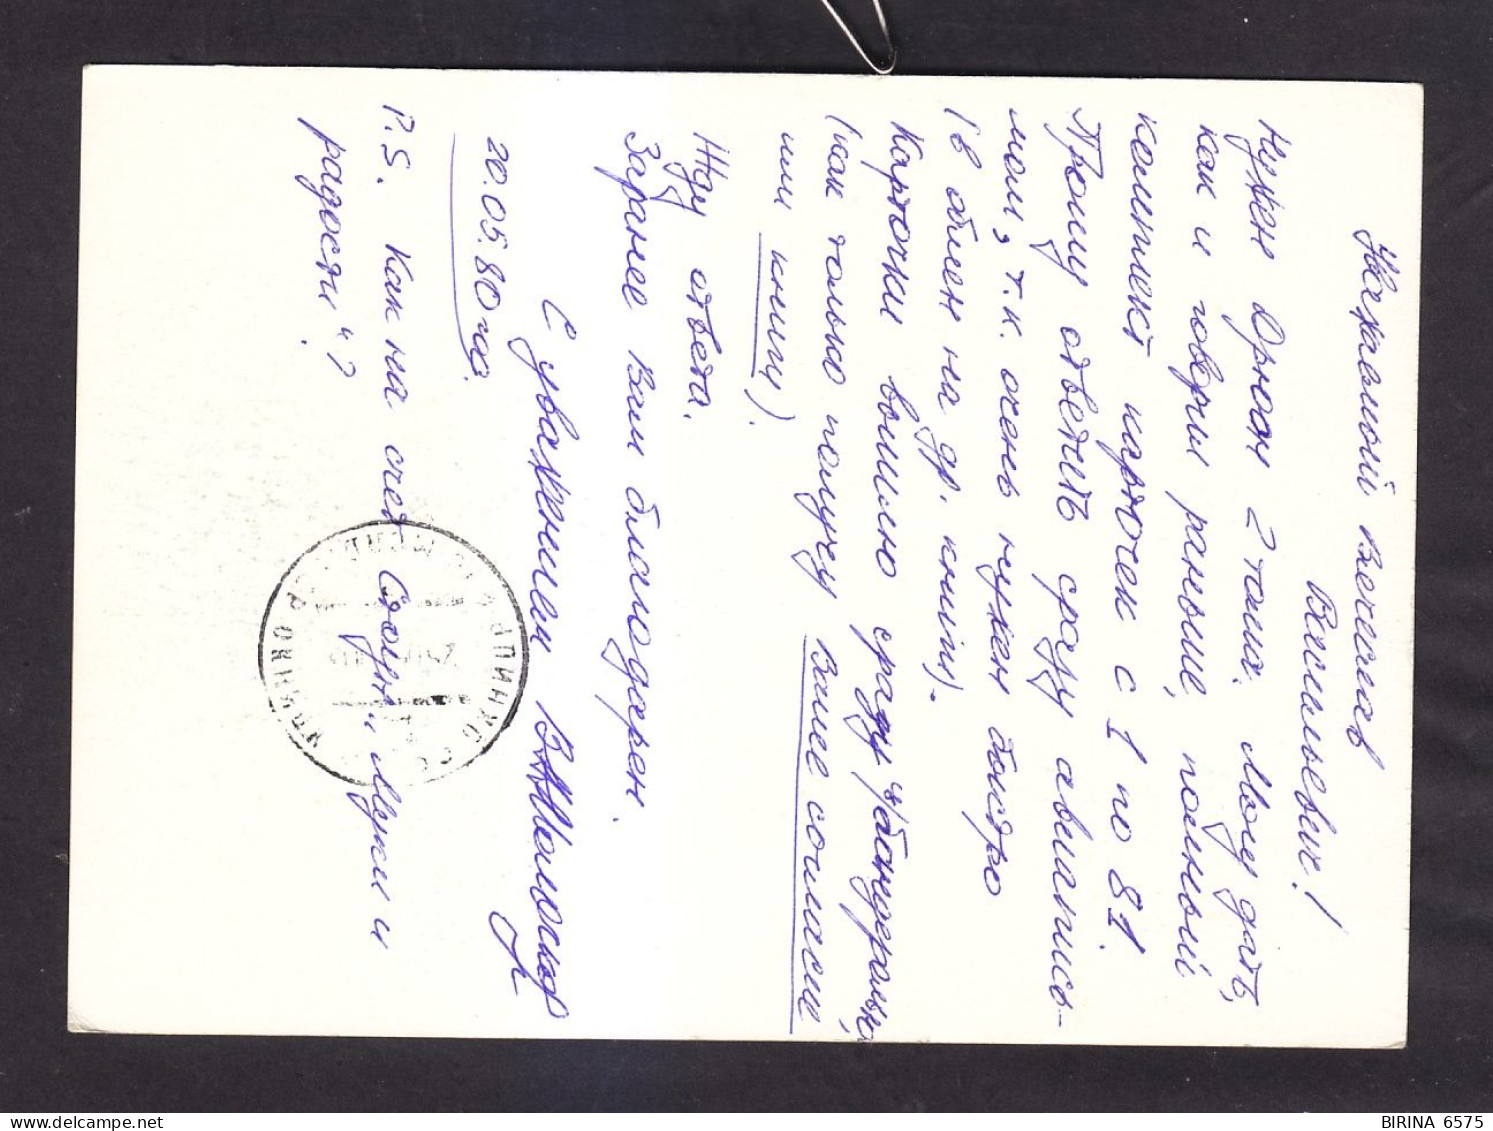 Уважаемый Вячеслав
Васильевич!
Нужен Дрюон 2 тома. Могу дать,
как и говорил раньше, полный
комплект карточек с 1 по 81.
Прошу ответить сразу авиапись-
мом, т.к. очень нужен быстро
(в обмен на др. книги).
Карточки вышлю сразу ц/бандеролью,
(как только получу Ваше согласие
или книгу).
Жду ответа.
Заранее Вам благодарен.
С уважением
20.05.80 г.
P.S. Как на счет Стоун „Муки и
радости"?
BIRINA 6575